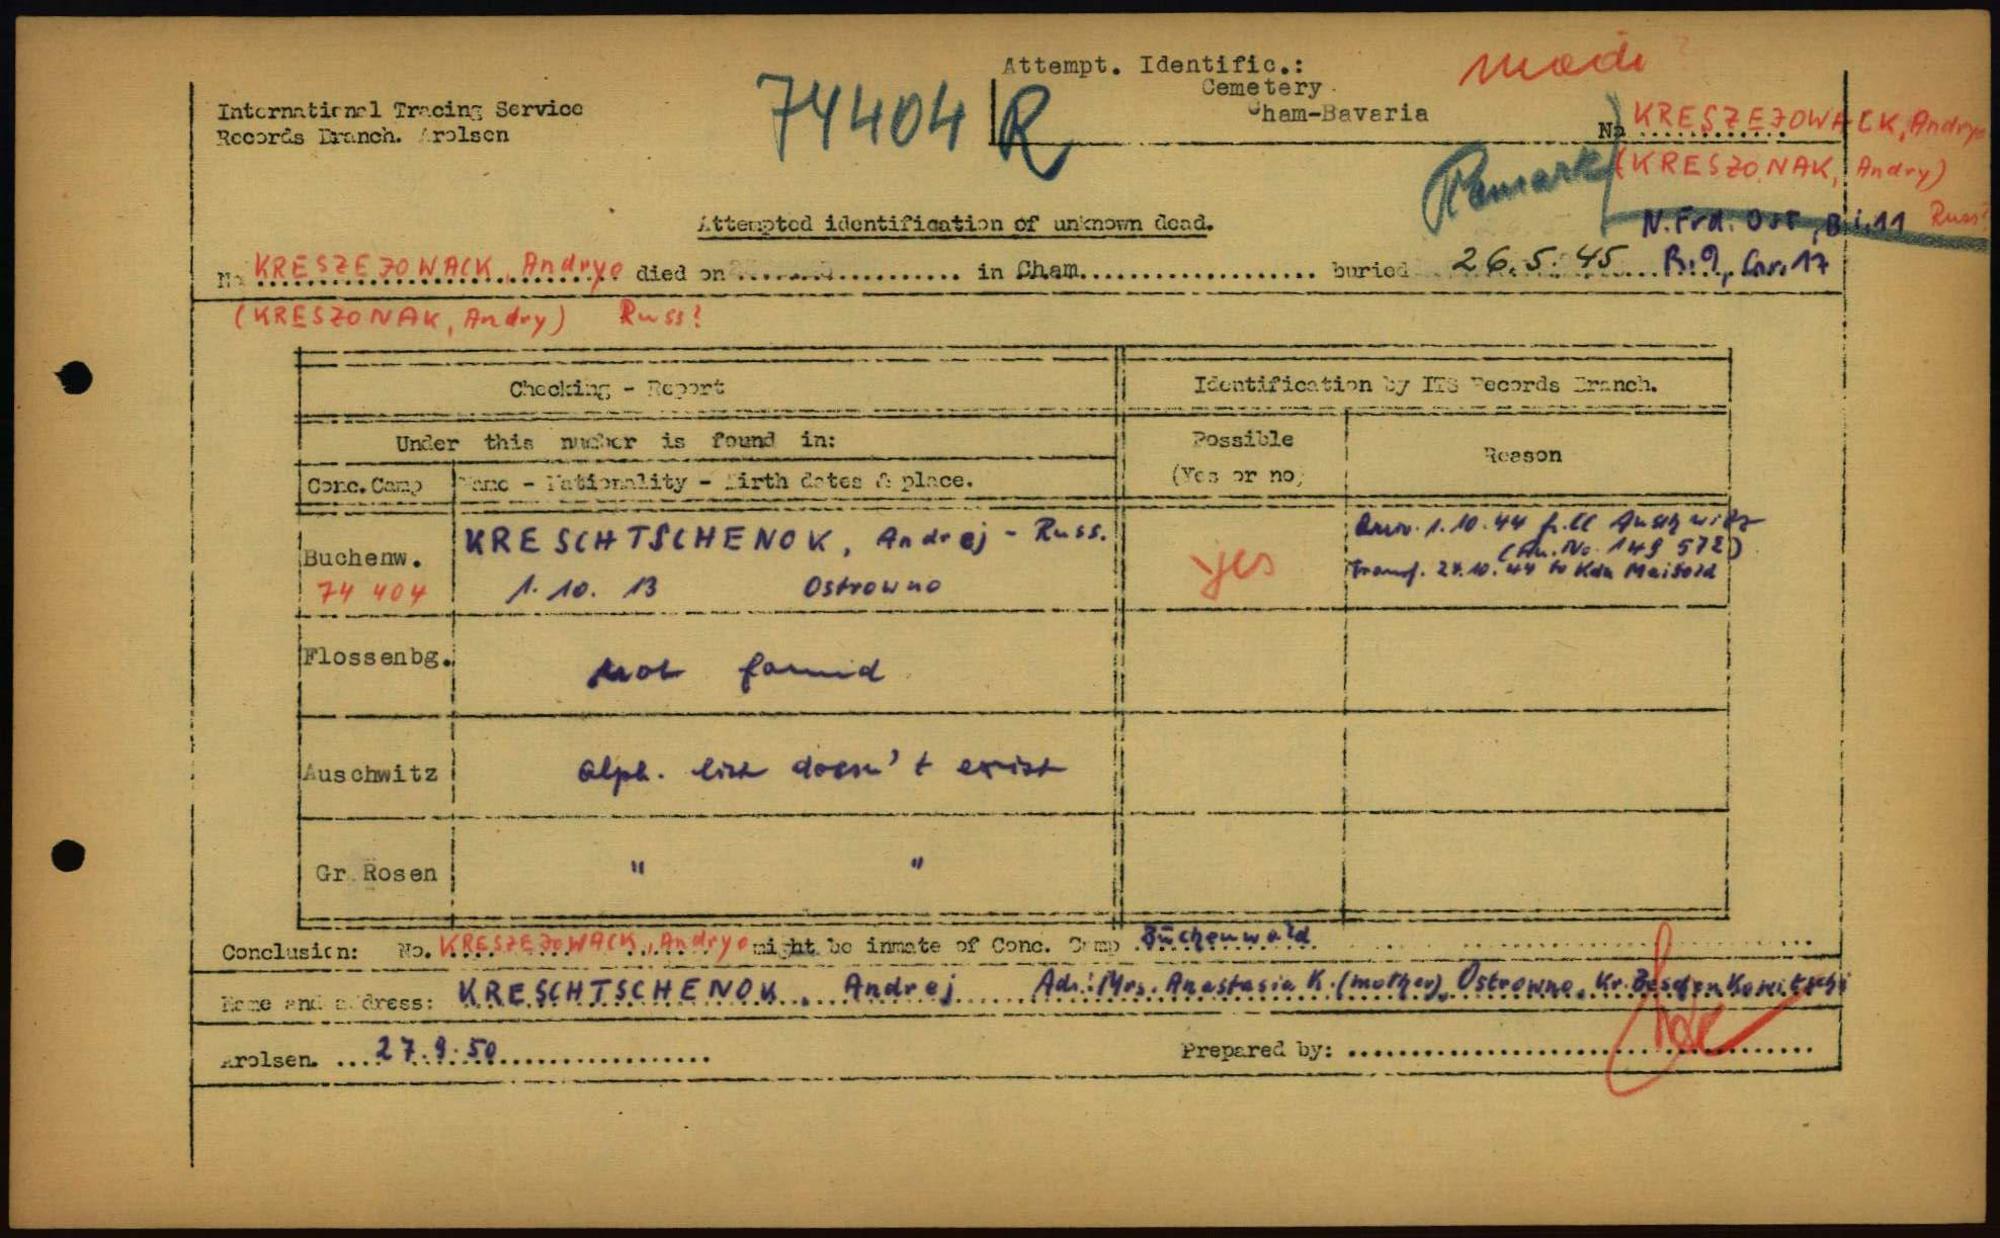 Attempt. Identific.:
Cemetery
Cham-Bavaria
74404 R
International Tracing Service
Records Branch. Arolsen
No KRESZEZOWACK, Andryo
(KRESZONAK, Andry)
Remark
N. Frd. Ost, Bl. 11 Russ?
Attempted identification of unknown dead.
No KRESZEZOWACK, Andryo died on .................... in Cham...................... buried 26.5.45 R. 9, Gr. 17
(KRESZONAK, Andry) Russ?
Checking - Report Identification by ITS Records Branch.
Under this number is found in: Possible
(Yes or no) Reason
Conc.Camp Name - Nationality - Birth dates & place.
Buchenw. KRESCHTSCHENOK, Andrej - Russ.
74 404 1. 10. 13 Ostrowno
yes
Arriv. 1.10.44 fr. CC Auschwitz
(Au. No. 149 572)
transf. 24.10.44 to Kdo
Flossenbg. not found
Auschwitz alph. list doesn't exist
Gr. Rosen " "
Conclusion: No. KRESZEZOWACK, Andryo might be inmate of Conc. Camp Buchenwald
Name and address: KRESCHTSCHENOK, Andrej Adr.: Mrs. Anastasia K. (mother), Ostrowno, Kr.
Arolsen. ....27.9.50....................
Prepared by: ........................................